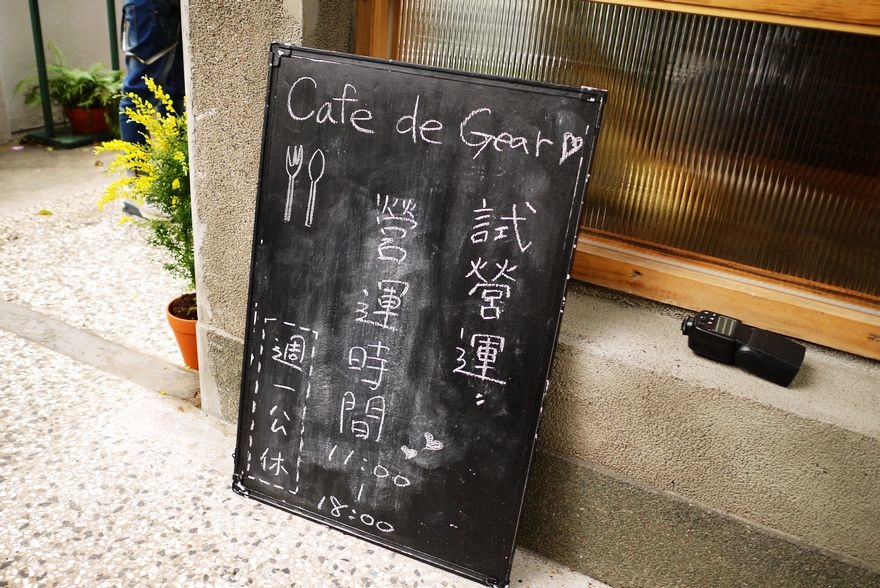 Cafe de Gear
試營運
營運時間
11:00
|
18:00
週一公休